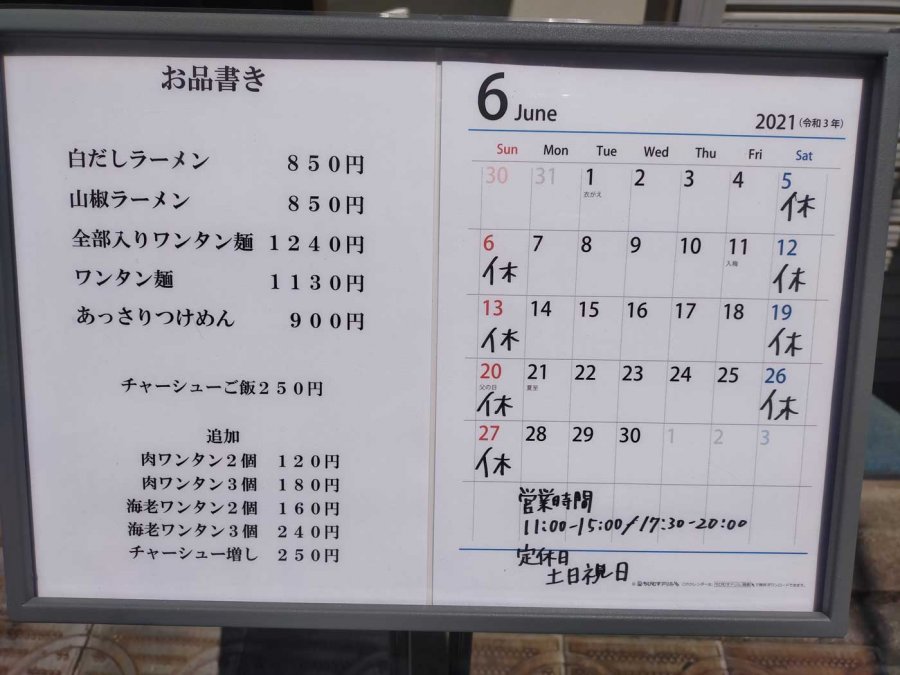 お品書き
白だしラーメン 850円
山椒ラーメン 850円
全部入りワンタン麺 1240円
ワンタン麺 1130円
あっさりつけめん 900円
チャーシューご飯250円
追加
肉ワンタン2個 120円
肉ワンタン3個 180円
海老ワンタン2個 160円
海老ワンタン3個 240円
チャーシュー増し 250円
6 June
2021(令和3年)
Sun Mon Tue Wed Thu Fri Sat
30 31 1 2 3 4 5
衣がえ
休
6 7 8 9 10 11 12
入梅
休 休
13 14 15 16 17 18 19
休 休
20 21 22 23 24 25 26
父の日 夏至
休 休
27 28 29 30 1 2 3
休
営業時間
11:00-15:00/17:30-20:00
定休日
土日祝日